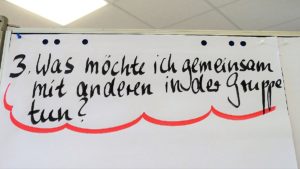 3. Was möchte ich gemeinsam
mit anderen in der Gruppe
tun?